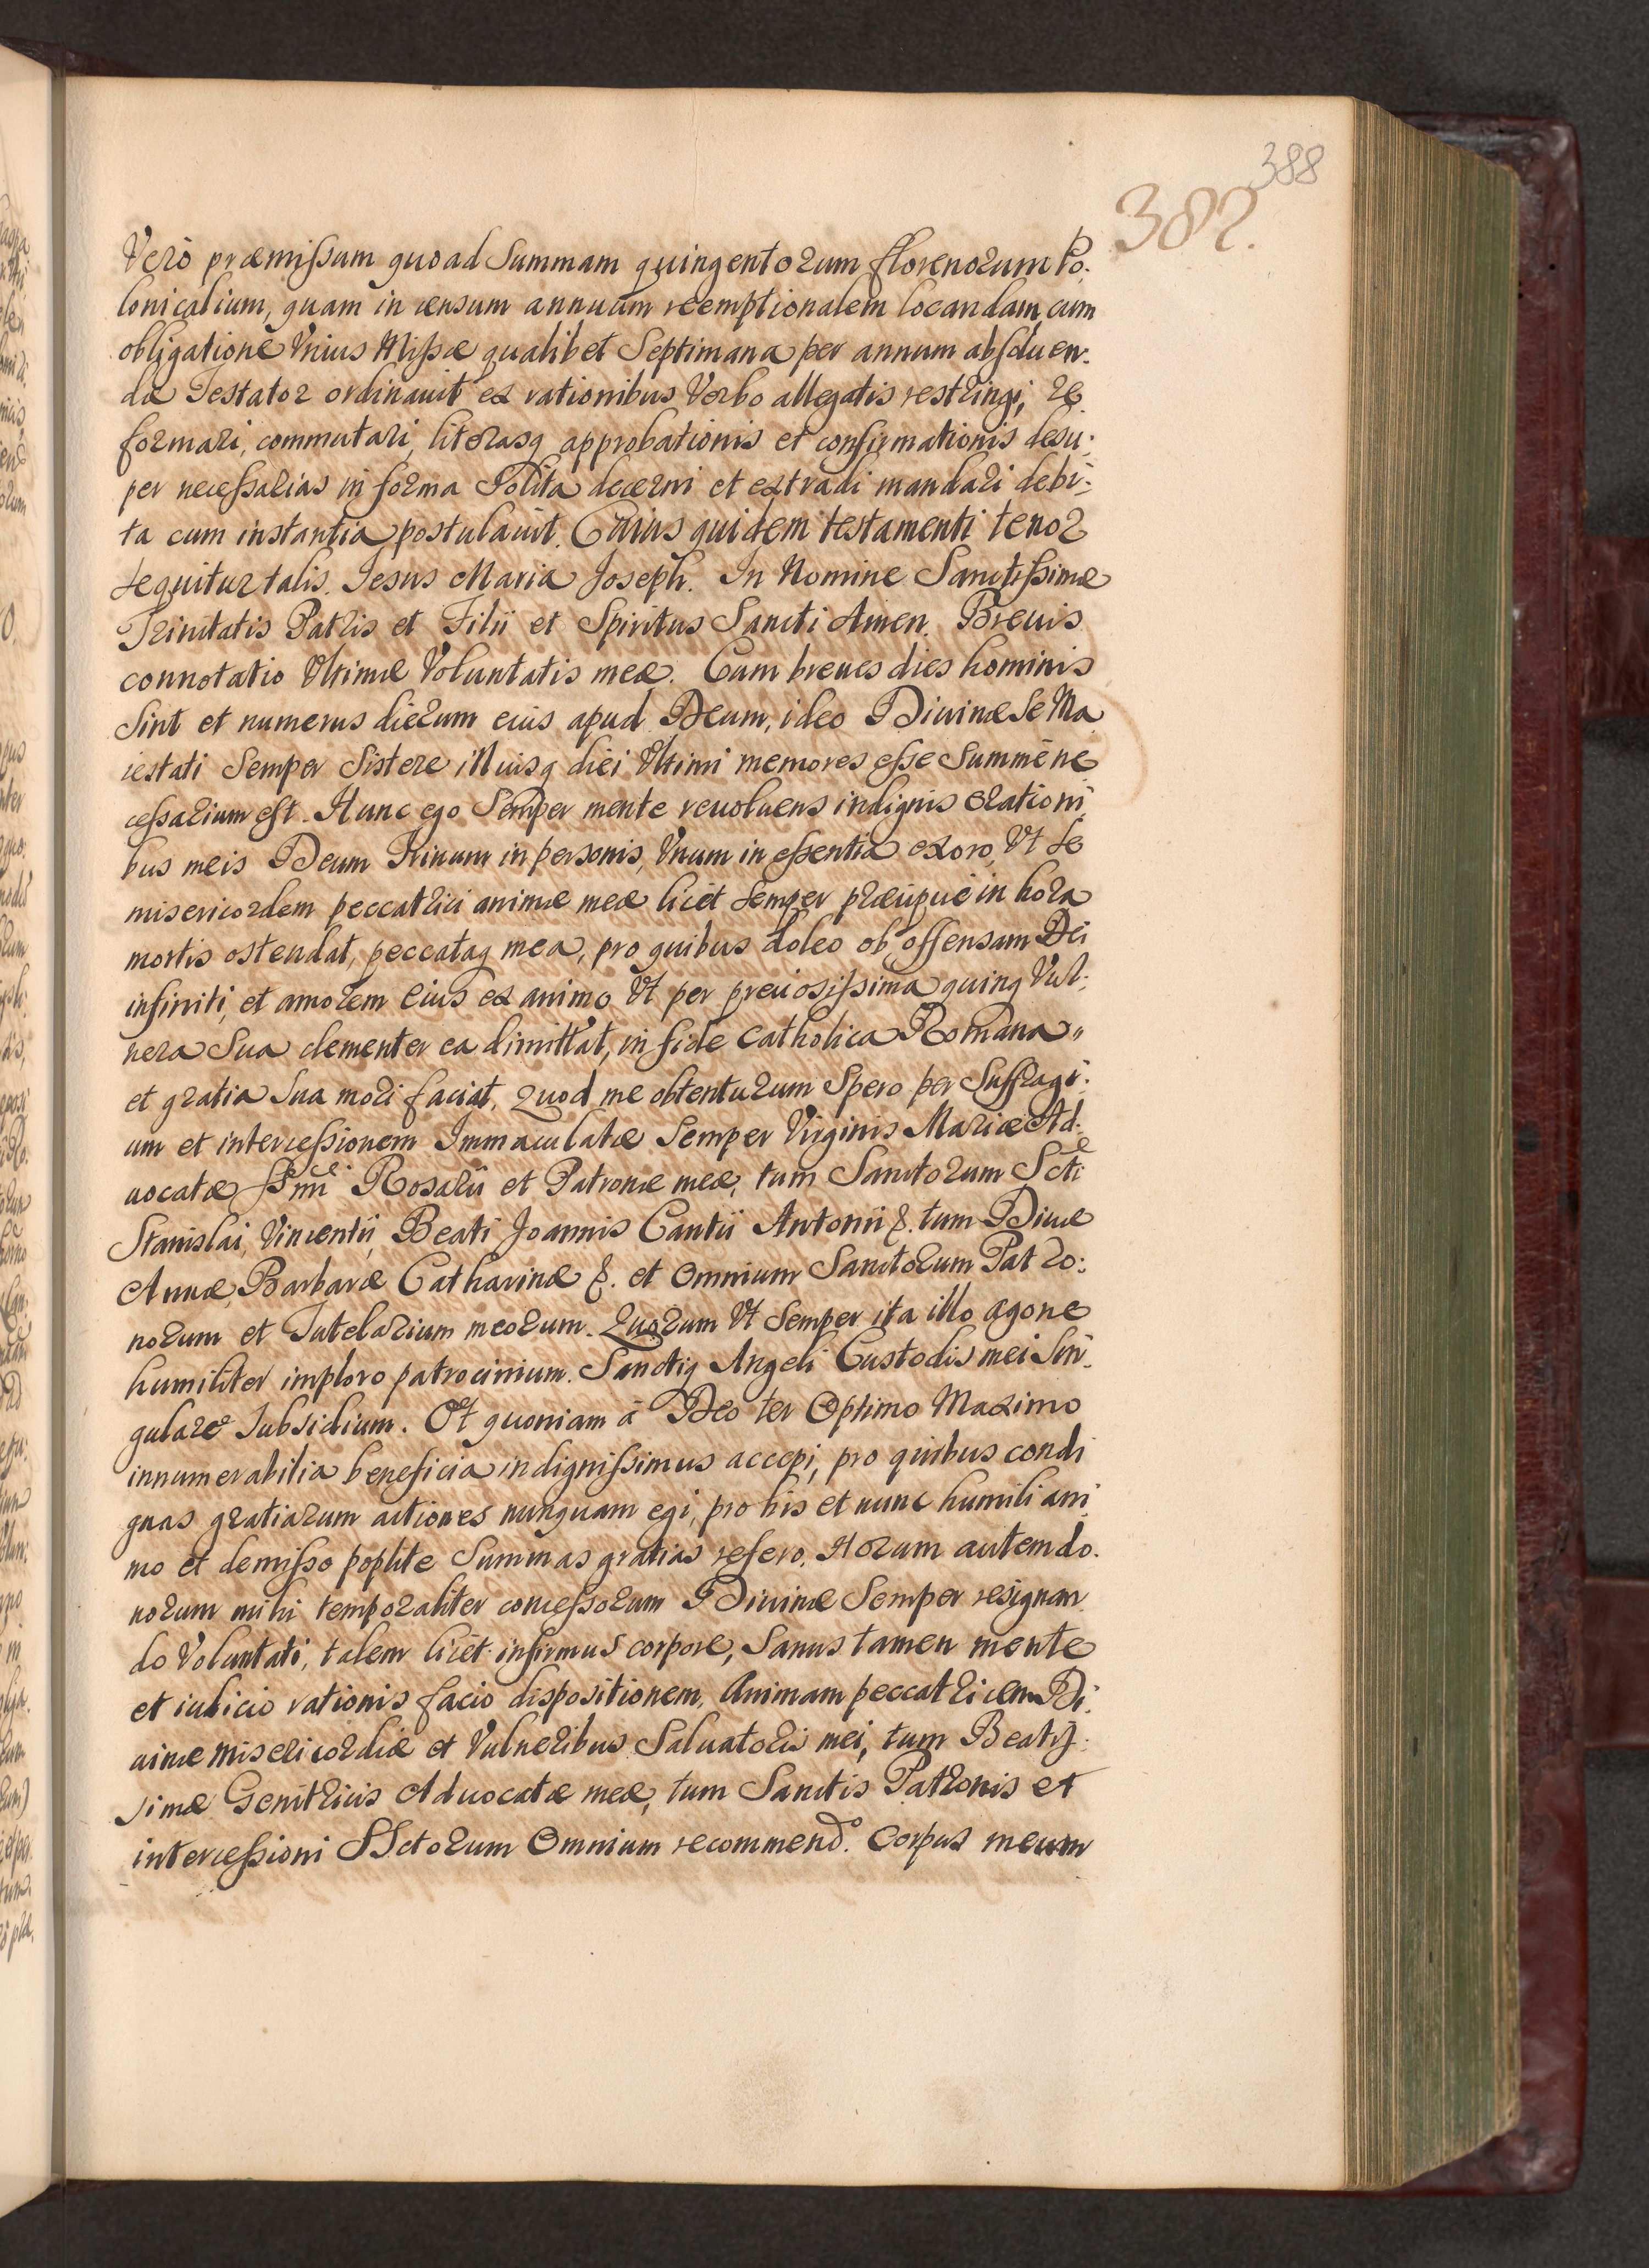 388
387.
Verò præmissum quoad Summam quingentorum florenorum Po:
lonicalium, quam in censum annuum reemptionalem locandam, cum
obligatione Vnius Missæ qualibet Septimana per annum absoluen:
dæ Testator ordinauit ex rationibus Verbo allegatis restringi, re
formari, commutari, literasq approbationis et confirmationis desu:
per necessarias in forma Solita decerni et extradi mandari debi:
ta cum instantia postulauit. Cuius quidem testamenti tenor
sequitur talis. Jesus Maria Joseph. In Nomine Sanctissimæ
Trinitatis Patris et Filii et Spiritus Sancti Amen. Breuis
connotatio Vltimæ Voluntatis meæ. Cum breues dies hominis
Sint et numerus dierum eius apud Deum, ideo Diuinæ Se Ma
iestati Semper Sistere illiusq diei Vltimi memores esse Summè ne
cessarium est. Hunc ego Semper mente reuoluens indignis orationi
bus meis Deum Trinum in personis, Vnum in essentia exoro, Vt se
misericordem peccatrici animæ meæ licet semper præcipuè in hora
mortis ostendat, peccataq mea, pro quibus doleo ob offensam Dei
infiniti, et amorem Eius ex animo Vt per preciosissima quinq Vul:
nera Sua clementer ea dimittat, in fide Catholica Romana "
et gratia Sua mori faciat, Quod me obtenturum Spero per Suffragi:
um et intercessionem Immaculatæ Semper Virginis Mariæ Ad:
uocatæ SSmi Rosarii et Patronæ meæ, tum Sanctorum Scti
Stanislai, Vincentii, Beati Joannis Cantii Antonii &. tum Diuæ
Annæ, Barbaræ Catharinæ &. et Omnium Sanctorum Patro:
norum et Tutelarium meorum. Quorum Vt Semper ita illo agone
humiliter imploro patrocinium. Sanctiq Angeli Custodis mei Sin:
gulare Subsidium. Et quoniam à Deo ter Optimo Maximo
innumerabilia beneficia indignissimus accepi, pro quibus condi
gnas gratiarum actiones nunquam egi, pro his et nunc humili ani
mo et demisso poplite Summas gratias refero. Horum autem do.
norum mihi temporaliter concessorum Diuinæ Semper resignan
do Voluntati, talem licèt infirmus corpore, Sanus tamen mente
et iudicio rationis facio dispositionem. Animam peccatricem Di:
uinæ misericordiæ et Vulneribus Saluatoris mei, tum Beatis:
simæ Genitricis Aduocatæ meæ, tum Sanctis Patronis et
intercessioni SSctorum Omnium recommendo. Corpus meum